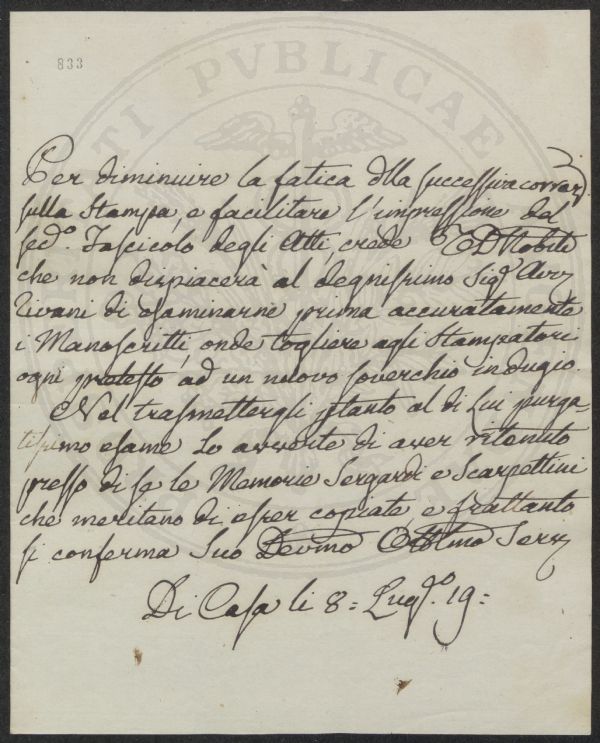 833
Per diminuire la fatica dlla successiva correz.
sulla Stampa, e facilitare l'impressione del
secd.o Fascicolo degli Atti, crede D Nobili
che non dispiacerà al degnissimo Sig.r Avv
di esaminarne prima accuratamente
i Manoscritti, onde togliere agli Stampatori
ogni pretesto ad un nuovo soverchio indugio.
Nel trasmettergli ptanto al di Lui purga-
tissimo esame Lo avverte di aver ritenuto
presso di se le Memorie Sergardi e Scarpellini
che meritano di esser copiate e frattanto
si conferma Suo Devmo Obblmo Serv
Di Casa li 8 = Lug.o 19 =